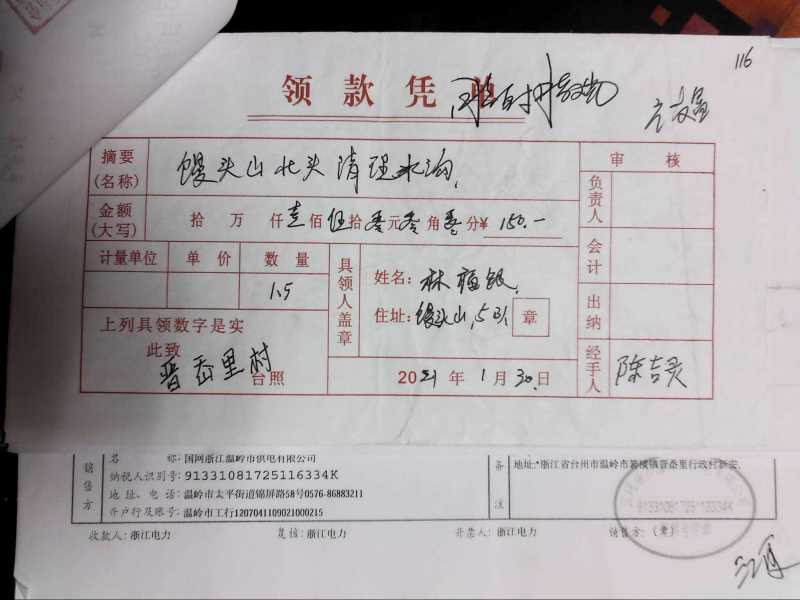 116
领款凭单
摘要(名称) 馒头山北头清理水沟.
审核
金额(大写) 拾 万 仟 壹 佰 伍 拾 零 元 零 角 零 分 ¥ 150.-
负责人
计量单位 单价 数量
1.5
会计
具领人盖章
姓名: 林福银.
住址: 馒头山, 5队 章
出纳
上列具领数字是实
此致
晋岙里村 台照
2021 年 1 月 30 日
经手人 陈吉灵
销售方
名 称: 国网浙江温岭市供电有限公司
纳税人识别号: 91331081725116334K
地 址、电 话: 温岭市太平街道锦屏路58号0576-86883211
开户行及账号: 温岭市工行1207041109021000215
备注
地址:*浙江省台州市温岭市箬横镇晋岙里行政村新安,
91331081725116334K
收款人: 浙江电力 复核: 浙江电力 开票人: 浙江电力 销售方: (章)